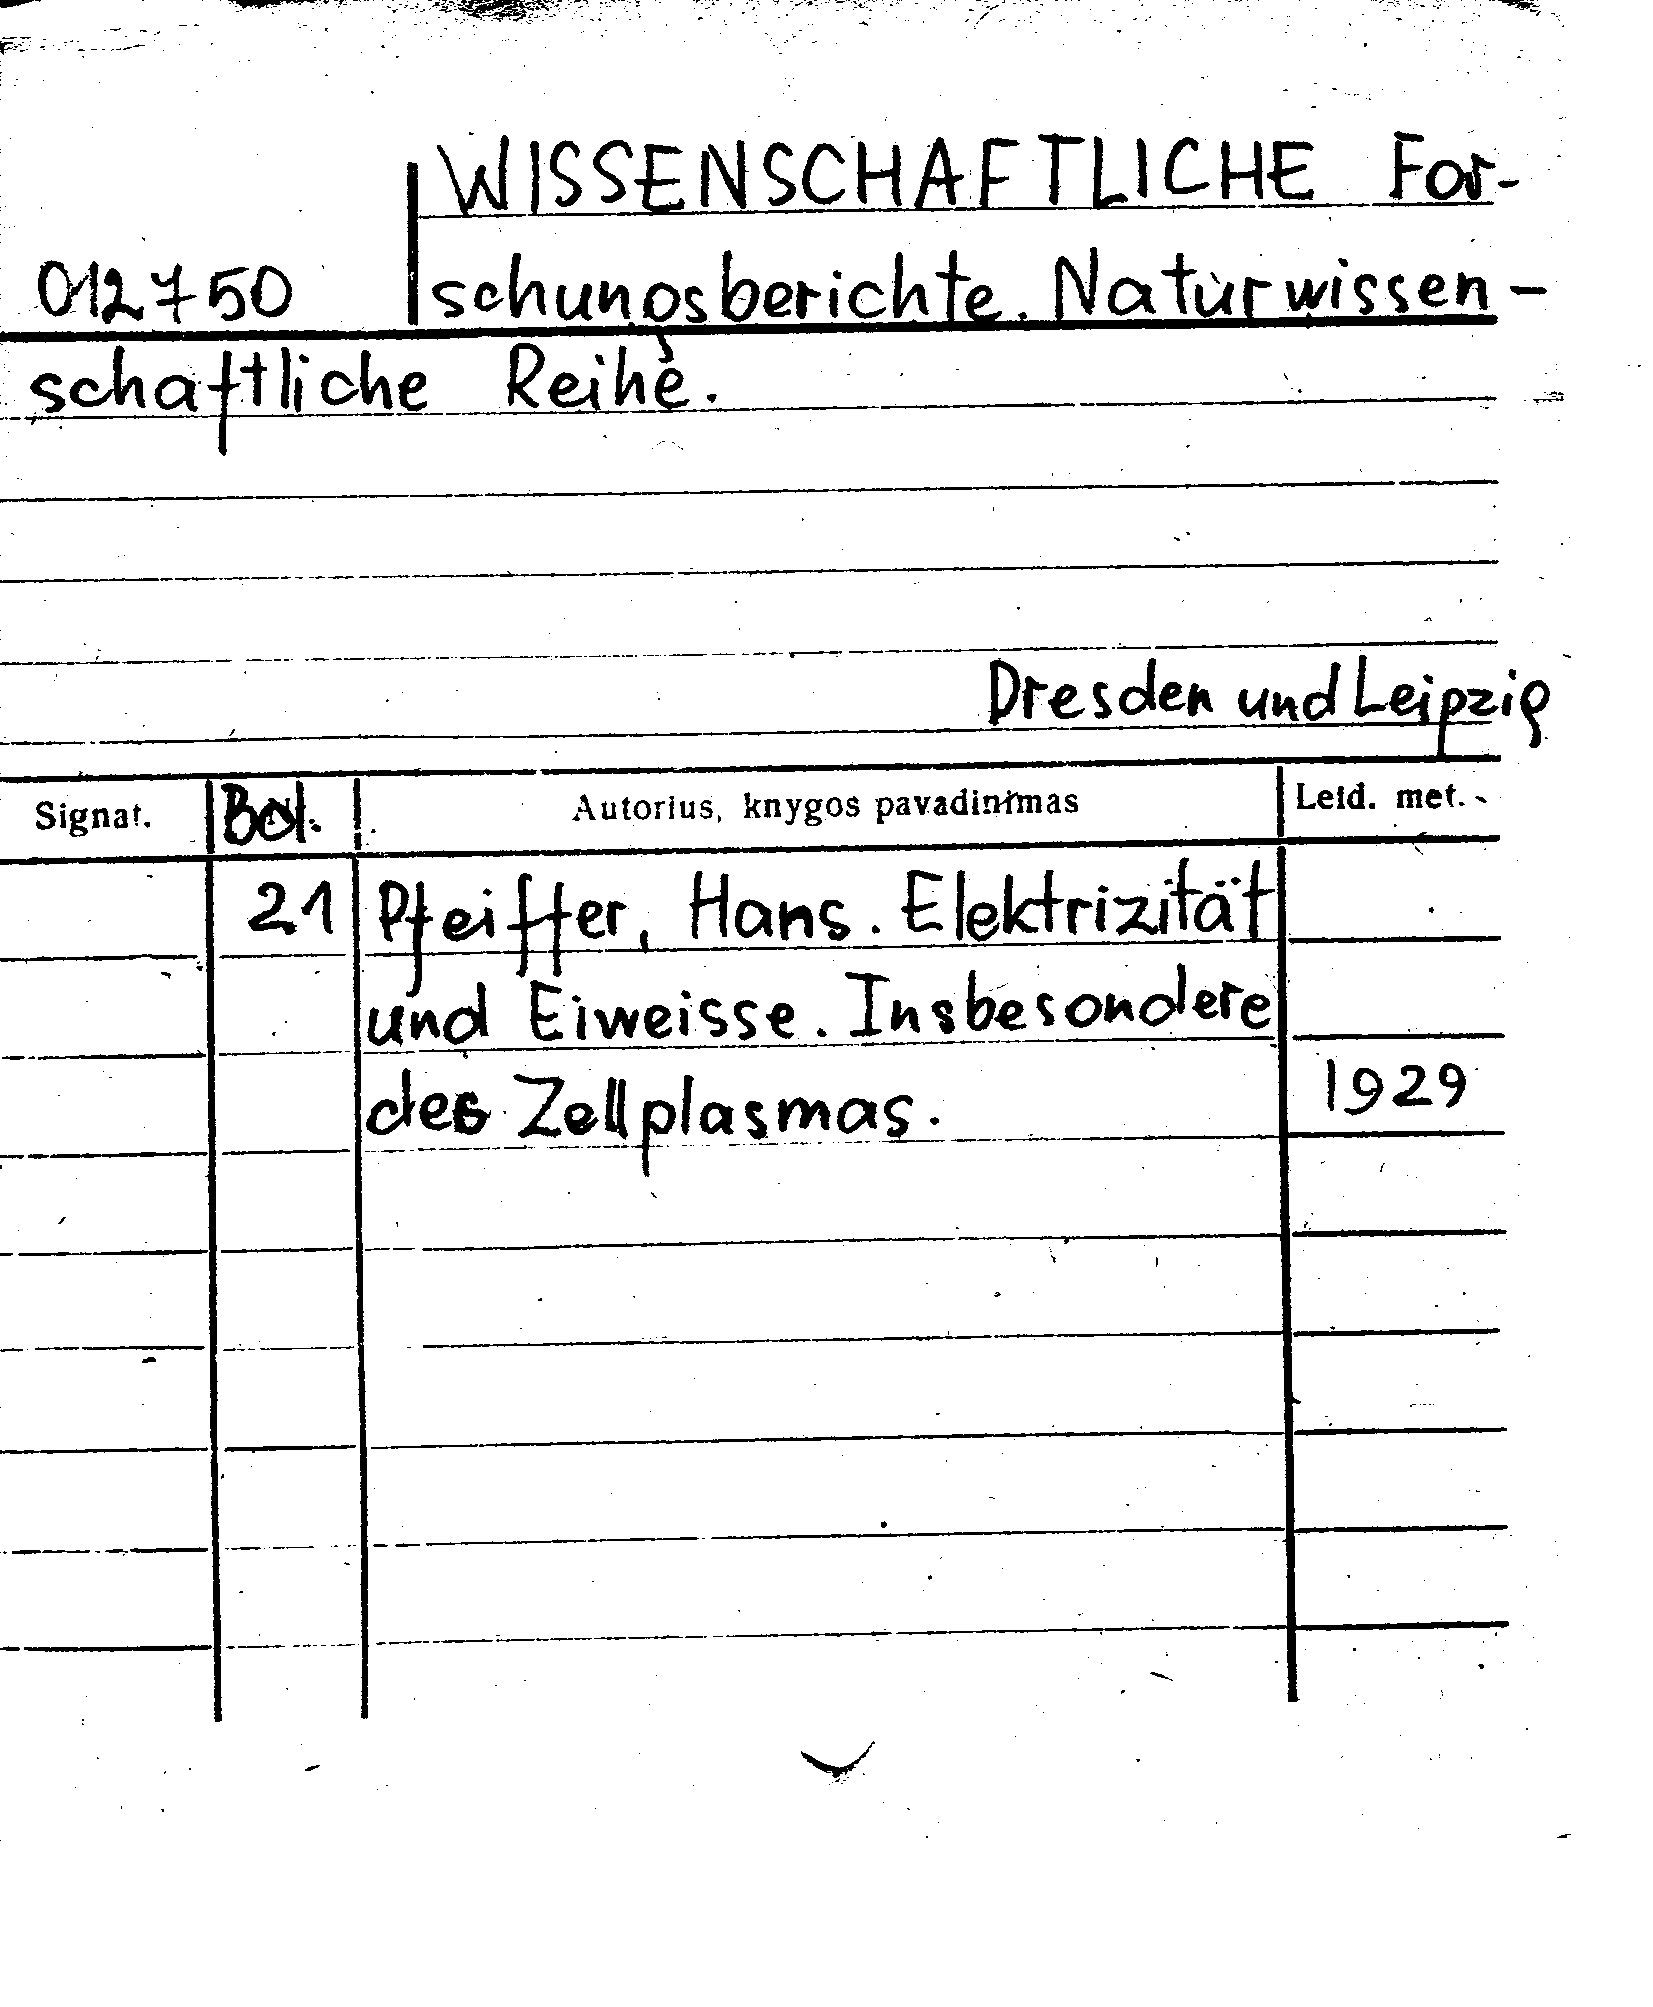 WISSENSCHAFTLICHE For-
012750 schungsberichte. Naturwissen-
schaftliche Reihe.
Dresden und Leipzig
Signat. Bd. Autorius, knygos pavadinimas Leid. met.
21 Pfeiffer, Hans. Elektrizität
und Eiweisse. Insbesondere
des Zellplasmas. 1929